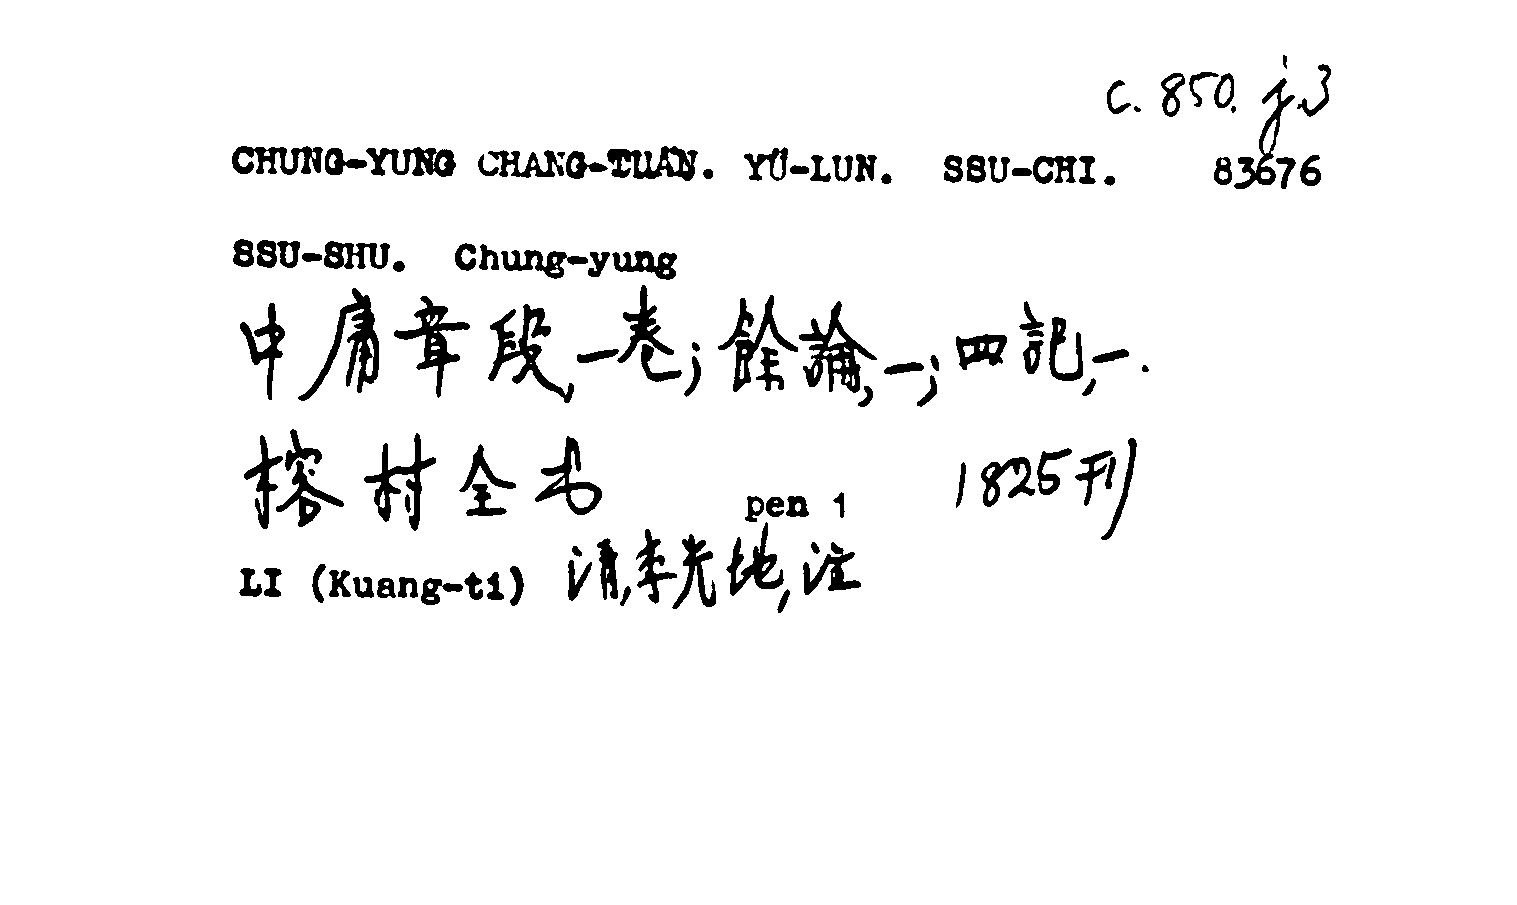 c. 850. j.3
CHUNG-YUNG CHANG-TUAN. YÜ-LUN. SSU-CHI. 83676
SSU-SHU. Chung-yung
中庸章段,一卷;餘論,一;四記,一.
榕村全书 pen 1 1825刊
LI (Kuang-ti) 清,李光地,注